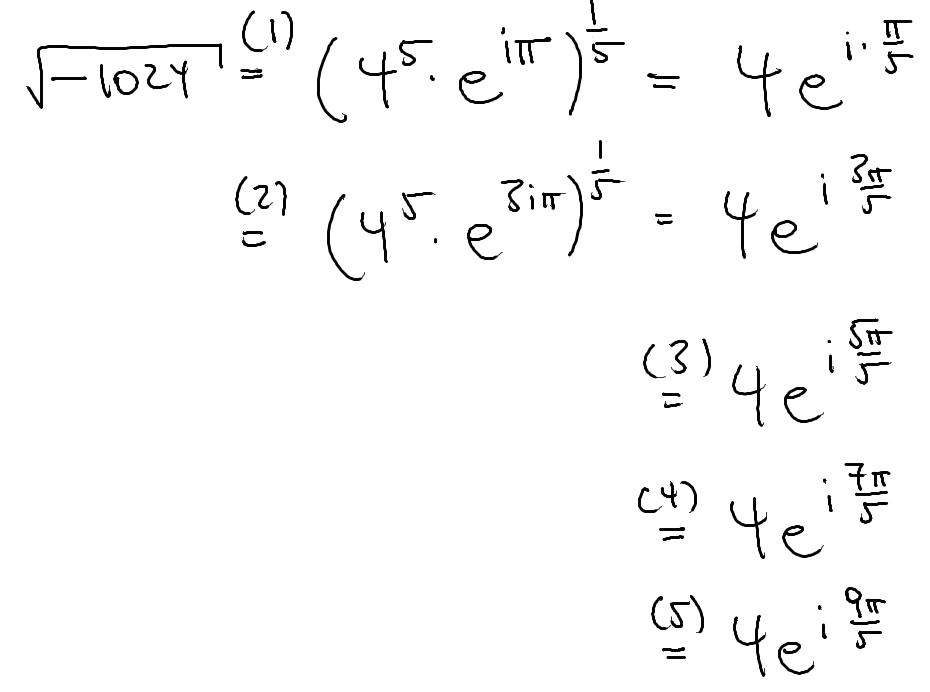 √-1024 (1)= (4⁵ · e^{iπ})^{1/5} = 4e^{i·π/5}
(2)= (4⁵ · e^{3iπ})^{1/5} = 4e^{i 3π/5}
(3)= 4e^{i 5π/5}
(4)= 4e^{i 7π/5}
(5)= 4e^{i 9π/5}